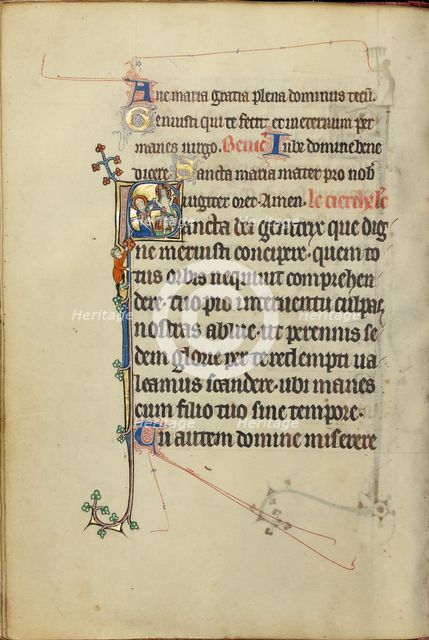 Aue maria gratia plena dominus tecū.
Genuisti qui te fecit. et in eternum per
manes uirgo. Iube domine bene
dicere. Sancta maria mater pro nob
iugiter oret. Amen. le tierche le
Sancta dei genitrix que dig
ne meruisti concipere. quem to
tus orbis nequiuit comprehen
dere. tuo pio interuentu culpas
nostras ablue. ut perennis se
dem glorie per te redempti ua
leamus scandere. ubi manes
cum filio tuo sine tempore.
Tu autem domine miserere
Heritage